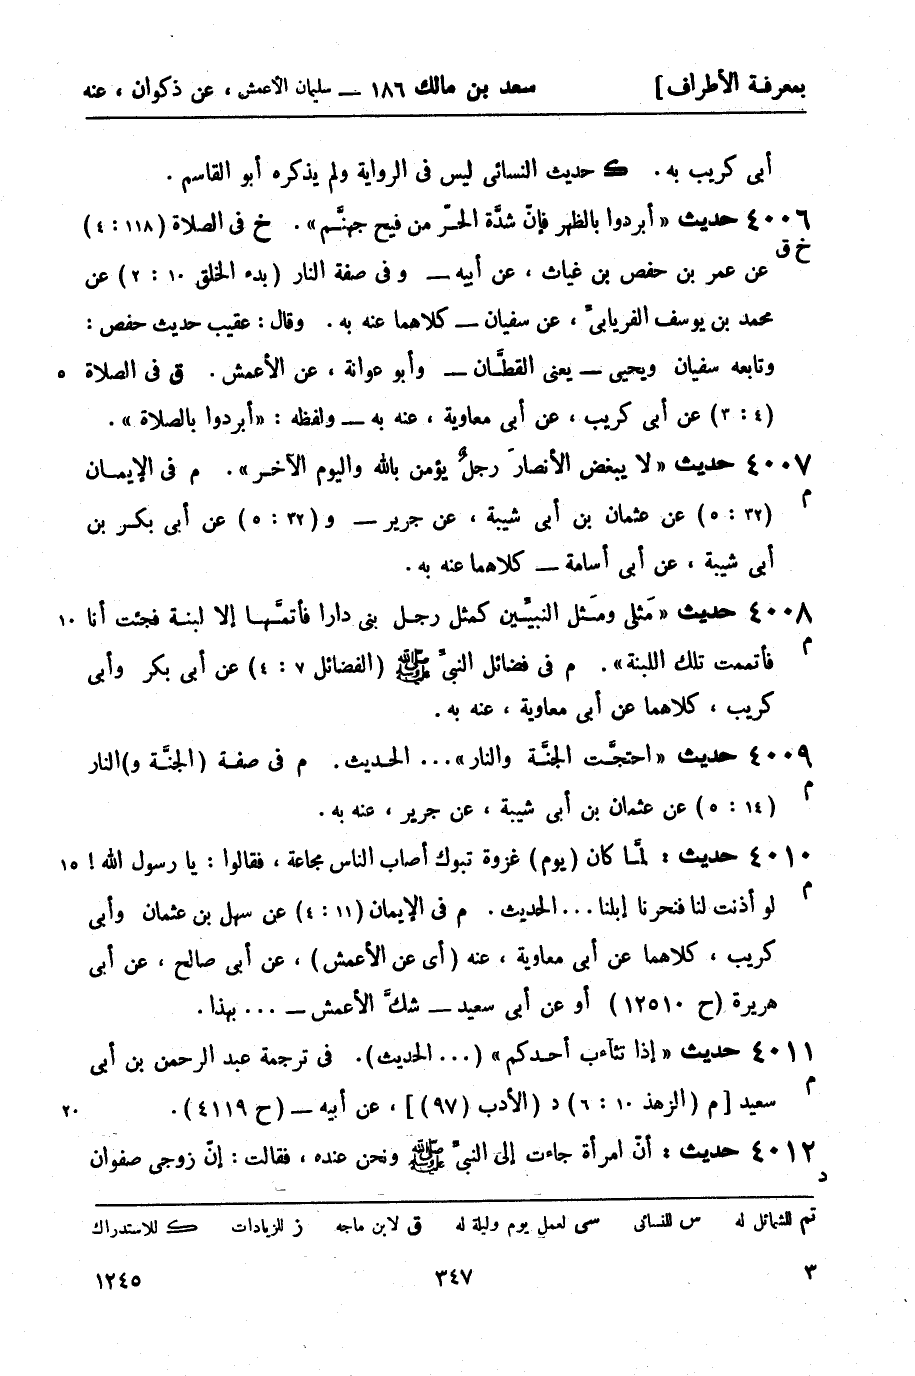 بمعرفة الأطراف] سعد بن مالك ١٨٦ — سليمان الأعمش ، عن ذكوان ، عنه
أبى كريب به . ك حديث النسائى ليس فى الرواية ولم يذكره أبو القاسم .
٤٠٠٦ حديث « أبردوا بالظهر فإنّ شدَّة الحرّ من فيح جهنَّم » . خ فى الصلاة (١١٨ : ٤)
خ ق
عن عمر بن حفص بن غياث ، عن أبيه — و فى صفة النار (بدء الخلق ١٠ : ٢) عن
محمد بن يوسف الفريابىّ ، عن سفيان — كلاهما عنه به . وقال : عقيب حديث حفص :
وتابعه سفيان ويحيى — يعنى القطَّان — وأبو عوانة ، عن الأعمش . ق فى الصلاة ٥
(٤ : ٣) عن أبى كريب ، عن أبى معاوية ، عنه به — ولفظه : «أبردوا بالصلاة » .
٤٠٠٧ حديث « لا يبغض الأنصارَ رجلٌ يؤمن بالله واليوم الآخر» . م فى الإيمان
م
(٣٢ : ٥) عن عثمان بن أبى شيبة ، عن جرير — و (٣٢ : ٥) عن أبى بكر بن
أبى شيبة ، عن أبى أسامة — كلاهما عنه به .
٤٠٠٨ حديث « مَثلى ومَثل النبيّين كمثل رجل بنى دارا فأتمَّها إلا لبنة فجئت أنا ١٠
م
فأتممت تلك اللبنة» . م فى فضائل النبىّ ﷺ (الفضائل ٧ : ٤) عن أبى بكر وأبى
كريب ، كلاهما عن أبى معاوية ، عنه به .
٤٠٠٩ حديث «احتجَّت الجنَّة والنار» ... الحديث . م فى صفة (الجنَّة و)النار
م
(١٤ : ٥) عن عثمان بن أبى شيبة ، عن جرير ، عنه به .
٤٠١٠ حديث : لمَّا كان (يوم) غزوة تبوك أصاب الناس مجاعة ، فقالوا : يا رسول الله ! ١٥
م
لو أذنت لنا فنحرنا إبلنا ... الحديث . م فى الإيمان (١١ : ٤) عن سهل بن عثمان وأبى
كريب ، كلاهما عن أبى معاوية ، عنه (أى عن الأعمش) ، عن أبى صالح ، عن أبى
هريرة (ح ١٢٥١٠) أو عن أبى سعيد — شكَّ الأعمش — ... بهذا .
٤٠١١ حديث « إذا تثاءب أحدكم » (... الحديث) . فى ترجمة عبد الرحمن بن أبى
م
سعيد [م (الزهد ١٠ : ٦) د (الأدب (٩٧)] ، عن أبيه — (ح ٤١١٩) . ٢٠
٤٠١٢ حديث : أنّ امرأة جاءت إلى النبىّ ﷺ ونحن عنده ، فقالت : إنّ زوجى صفوان
د
تم للشمائل له س للنسائى سى لعمل يوم وليلة له ق لابن ماجه ز للزيادات ك للاستدراك
٣ ٣٤٧ ١٢٤٥